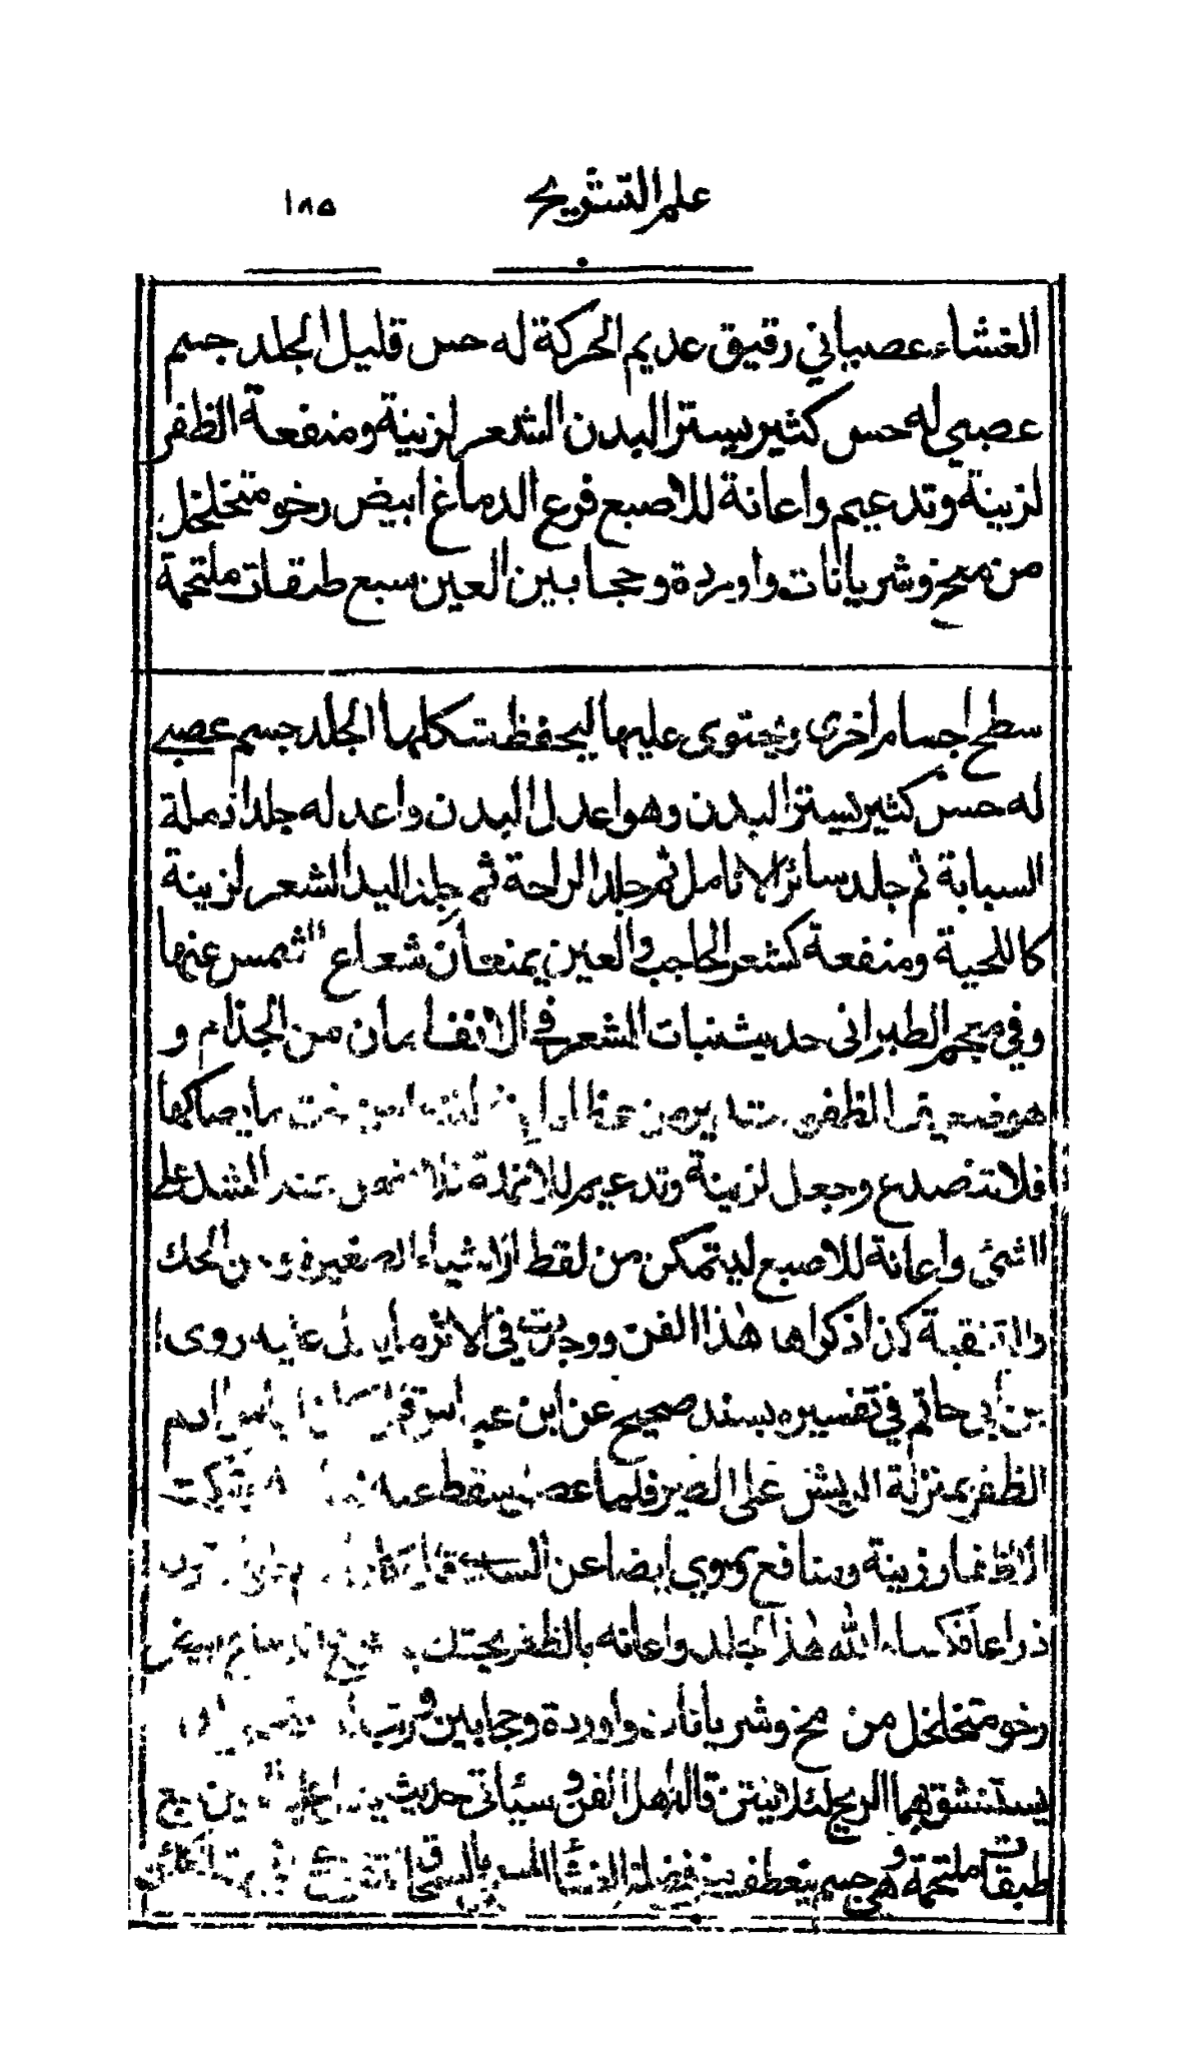 علم التشريح
١٨٥
الغشاء عصباني رقيق عديم الحركة له حس قليل الجلد جسم
عصبي له حس كثير يستر البدن الشعر لزينة ومنفعة الظفر
لزينة وتدعيم واعانة للاصبع فرع الدماغ ابيض رخو متخلخل
من مخ وشريانات واوردة وحجابين العين سبع طبقات ملتحمة
سطح اجسام اخرى ويحتوى عليها ليحفظ شكلها الجلد جسم عصبي
له حس كثير يستر البدن وهو اعدل البدن واعدله جلد انملة
السبابة ثم جلد سائر الانامل ثم جلد الراحة ثم جلد اليد الشعر لزينة
كاللحية ومنفعة كشعر الحاجب والعين يمنعان شعاع الشمس عنها
وفي معجم الطبراني حديث نبات الشعر في الانف امان من الجذام و
هو ضعيف الظفر مستدير من عظام لينة ما يصاكها
فلا تنصدع وجعل لزينة وتدعيم للانملة عند الشد على
الشئ واعانة للاصبع ليتمكن من لقط الاشياء الصغيرة ومن الحك
والتنقية كذا ذكر اهل هذا الفن ووجدت في الاثر ما يدل عليه روى ا
بن ابي حاتم في تفسيره بسند صحيح عن ابن عباس قال كان لباس ادم
الظفر بمنزلة الريش على الطير فلما عصى سقط عنه وتركت
الاظفار زينة ومنافع وروي ايضا عن السدي قال كان ادم طوله ستون
ذراعا فكساه الله هذا الجلد واعانه بالظفر يحتك به فرع الدماغ ابيض
رخو متخلخل من مخ وشريانات واوردة وحجابين
يستنشق بهما الريح لئلا ينتن قاله اهل الفن وسيأتي حديث العين سبع
طبقات ملتحمة وهي جسم ينعطف من فضلة الغشاء